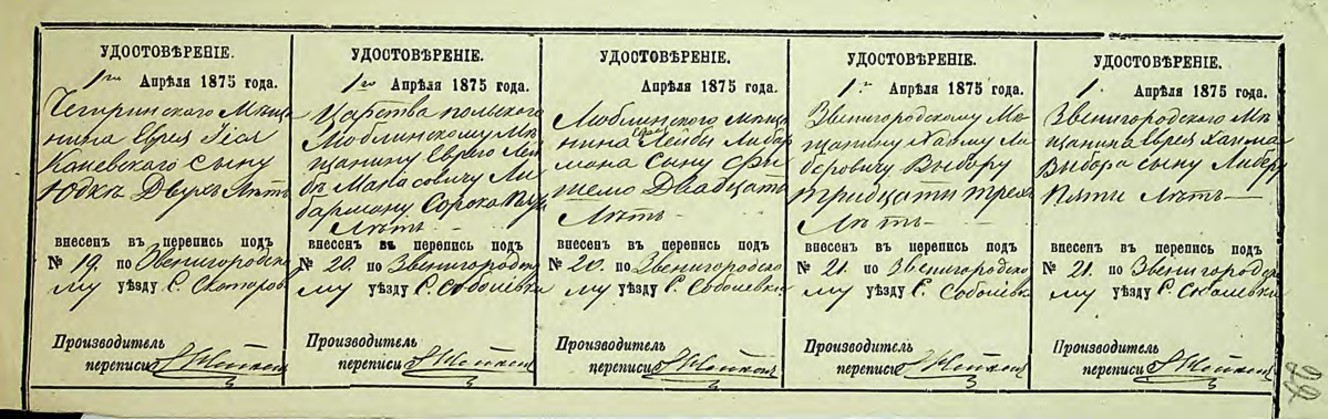 УДОСТОВѢРЕНІЕ.
1го Апрѣля 1875 года.
Чегиринского Мѣща
нина Еврея Іося
Каневского сыну
Юдкѣ Двухъ Лѣтъ
внесенъ въ перепись подъ
№ 19. по Звенигородско
му уѣзду С.
Производитель
переписи
УДОСТОВѢРЕНІЕ.
1го Апрѣля 1875 года.
Царства польского
Люблинскому Мѣ
щанину Еврею Лей
бѣ Ли
барману Сорока
Лѣтъ
внесенъ въ перепись подъ
№ 20. по Звенигородско
му уѣзду С. Соболевка
Производитель
переписи
УДОСТОВѢРЕНІЕ.
Апрѣля 1875 года.
Люблинского мѣща
нина Еврея Лейбы Либар
мана Сыну Фы
шемо Двадцать
Лѣтъ
внесенъ въ перепись подъ
№ 20. по Звенигородско
му уѣзду С. Соболевки
Производитель
переписи
УДОСТОВѢРЕНІЕ.
1го Апрѣля 1875 года.
Звенигородскому Мѣ
щанину Хаиму Ли
беровичу Выбору
тридцати трехъ
Лѣтъ
внесенъ въ перепись подъ
№ 21. по Звенигородско
му уѣзду С. Соболевк
Производитель
переписи
УДОСТОВѢРЕНІЕ.
1. Апрѣля 1875 года.
Звенигородского Мѣ
щанина Еврея Хаима
Выбора сыну Либеру
Пяти Лѣтъ
внесенъ въ перепись подъ
№ 21. по Звенигородско
му уѣзду С. Соболевки
Производитель
переписи